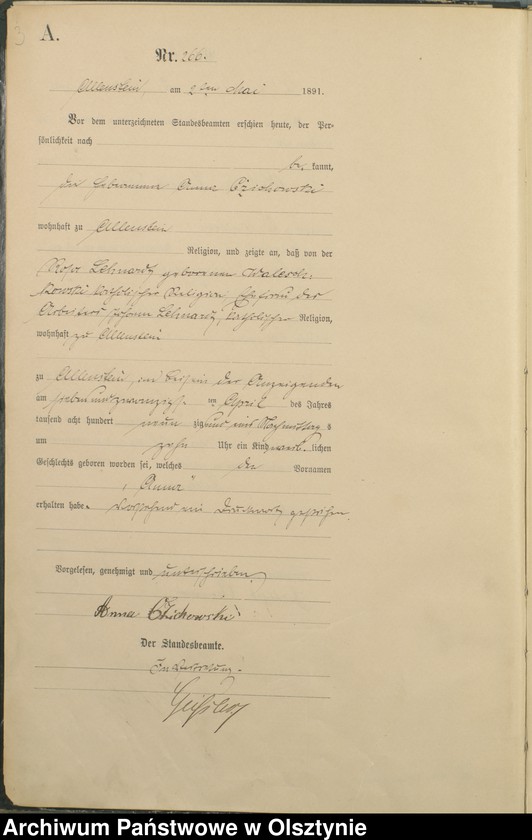 3
A.
Nr. 266.
Allenstein, am 2ten Mai 1891.
Vor dem unterzeichneten Standesbeamten erschien heute, der Per-
sönlichkeit nach
be kannt,
die Hebeamme Anna Czichowski
wohnhaft zu Allenstein
Religion, und zeigte an, daß von der
Rosa Lehnardz geborenen Walesch-
kowski katholischer Religion, Ehefrau des
Arbeiters Johann Lehnardz, katholischer Religion,
wohnhaft zu Allenstein
zu Allenstein, im Beisein der Anzeigenden
am sieben und zwanzigsten April des Jahres
tausend acht hundert neun zig und eins Nachmittag s
um zehn Uhr ein Kind weib lichen
Geschlechts geboren worden sei, welches die Vornamen
„Anna"
erhalten habe. Vorstehend ein Druckwort gestrichen.
Vorgelesen, genehmigt und unterschrieben
Anna Czichowski
Der Standesbeamte.
In Vertretung.
Archiwum Państwowe w Olsztynie